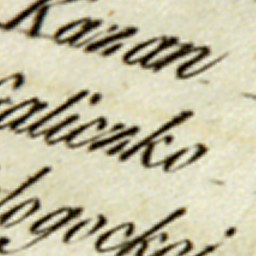 Kazan
Galiczko
logockoi